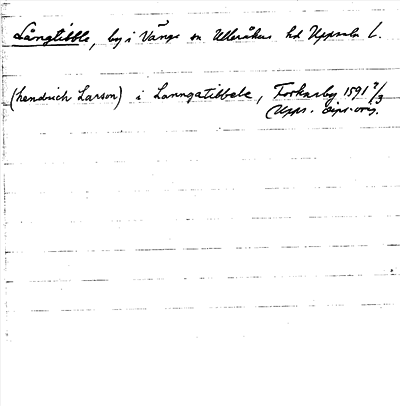 Långtibble, by i Vänge sn Ulleråkers hd Uppsala l.
(hendrich Larson) i Lanngatibbele, Torkarby 1591 7/3
(Upps. dipl.